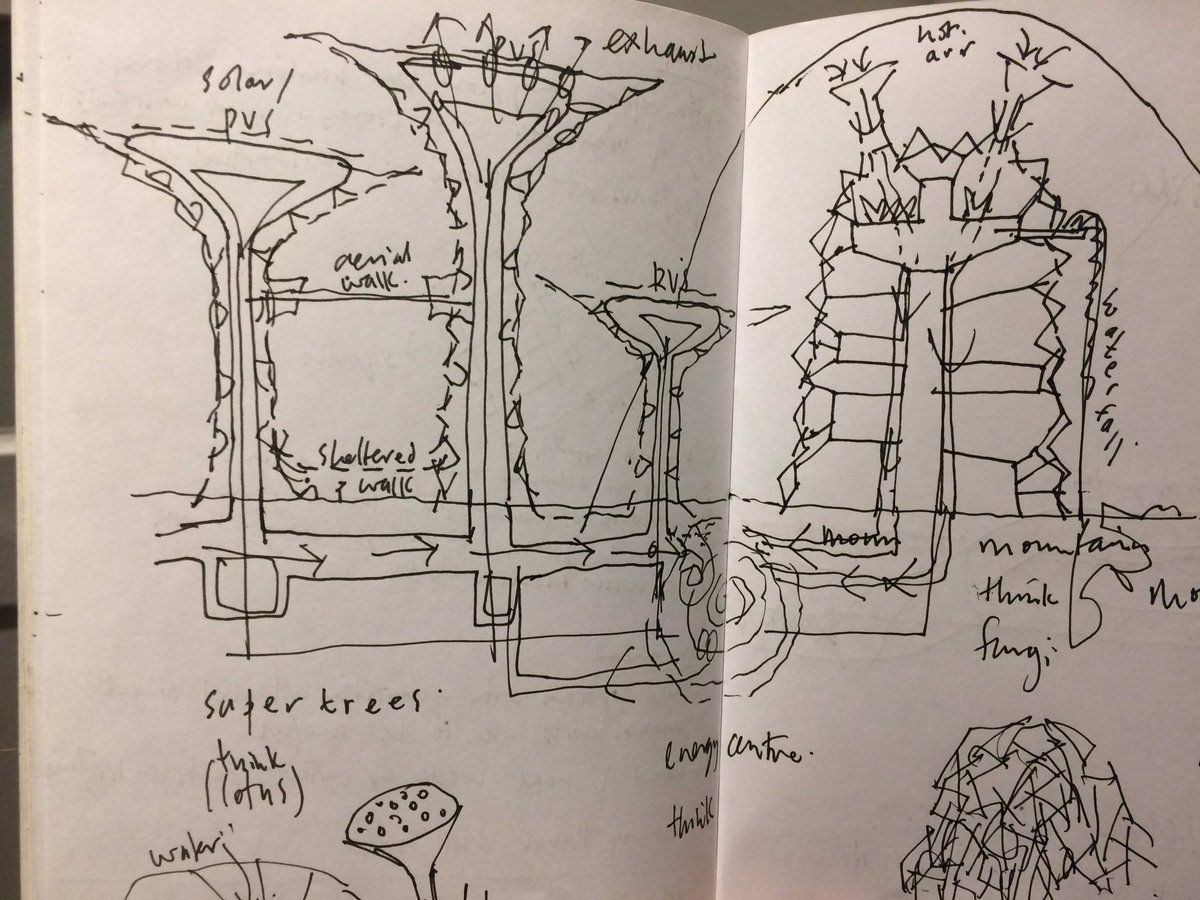 solar/
pvs
pvs
exhaust
hot.
air
aerial
walk.
pvs
waterfall.
sheltered
walk
mountains
think
fungi
super trees.
think
(lotus)
energy centre.
think
water